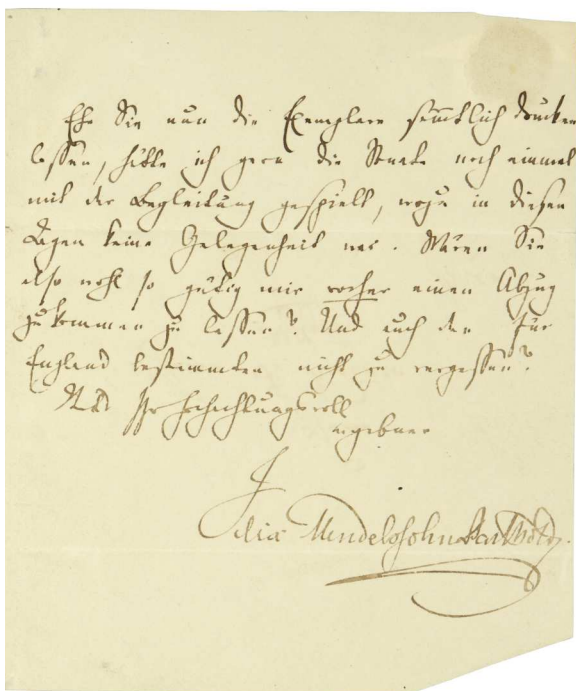 Ehe Sie nun die Exemplare sämtlich drucken
lassen, hätte ich gern die Sonate noch einmal
mit der Begleitung gespielt, wozu in diesen
Tagen keine Gelegenheit war. Wären Sie
also wohl so gütig mir vorher einen Abzug
zukommen zu lassen? Und auch den für
England bestimmten nicht zu vergessen?
hochachtungsvoll
ergebner
Felix Mendelssohn Bartholdy